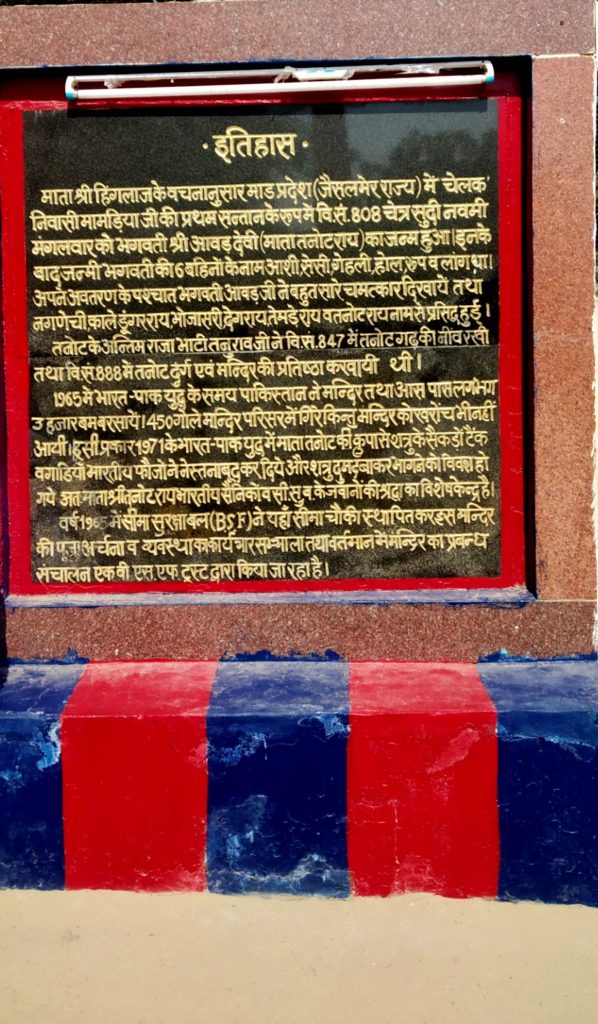 · इतिहास ·
माता श्री हिंगलाज के वचनानुसार माड प्रदेश (जैसलमेर राज्य) में चेलक
निवासी मामड़िया जी की प्रथम सन्तान के रूप मे वि.सं. 808 चेत्र सुदी नवमी
मंगलवार को भगवती श्री आवड़ देवी (माता तनोटराय) का जन्म हुआ। इनके
बाद जन्मी भगवती की 6 बहिनों के नाम आशी, सेसी, गेहली, होल, रूप व लांग था।
अपने अवतरण के पश्चात भगवती आवड़ जी ने बहुत सारे चमत्कार दिखाये तथा
नगणेची काले डूंगरराय भोजासरी देगराय तेमडेराय व तनोटराय नाम से प्रसिद्ध हुई।
तनोट के अन्तिम राजा भाटी तनुरावजी ने वि.स. 847 में तनोट गढ़ की नींव रखी
तथा वि.सं. 888 में तनोट दुर्ग एवं मन्दिर की प्रतिष्ठा करवायी थी।
1965 में भारत-पाक युद्ध के समय पाकिस्तान ने मन्दिर तथा आस पास लगभग
3 हजार बम बरसाये। 450 गोले मन्दिर परिसर में गिरे किन्तु मन्दिर को खरोंच भी नहीं
आयी। इसी प्रकार 1971 के भारत-पाक युद्ध में माता तनोट की कृपा से शत्रु के सैकडों टैंक
व गाडियां भारतीय फौजों ने नेस्तनाबूद कर दिये और शत्रु दुम दबाकर भागने को विवश हो
गये अतः माता श्री तनोटराय भारतीय सैनिकों व सी.सु.ब. के जवानों की श्रद्धा का विशेष केन्द्र है।
वर्ष 1965 में सीमा सुरक्षा बल (BSF) ने यहाँ सीमा चौकी स्थापित कर इस मन्दिर
की पूजा अर्चना व व्यवस्था का कार्यभार सम्भाला तथा वर्तमान में मन्दिर का प्रबन्ध
संचालन एक बी.एस.एफ ट्रस्ट द्वारा किया जा रहा है।